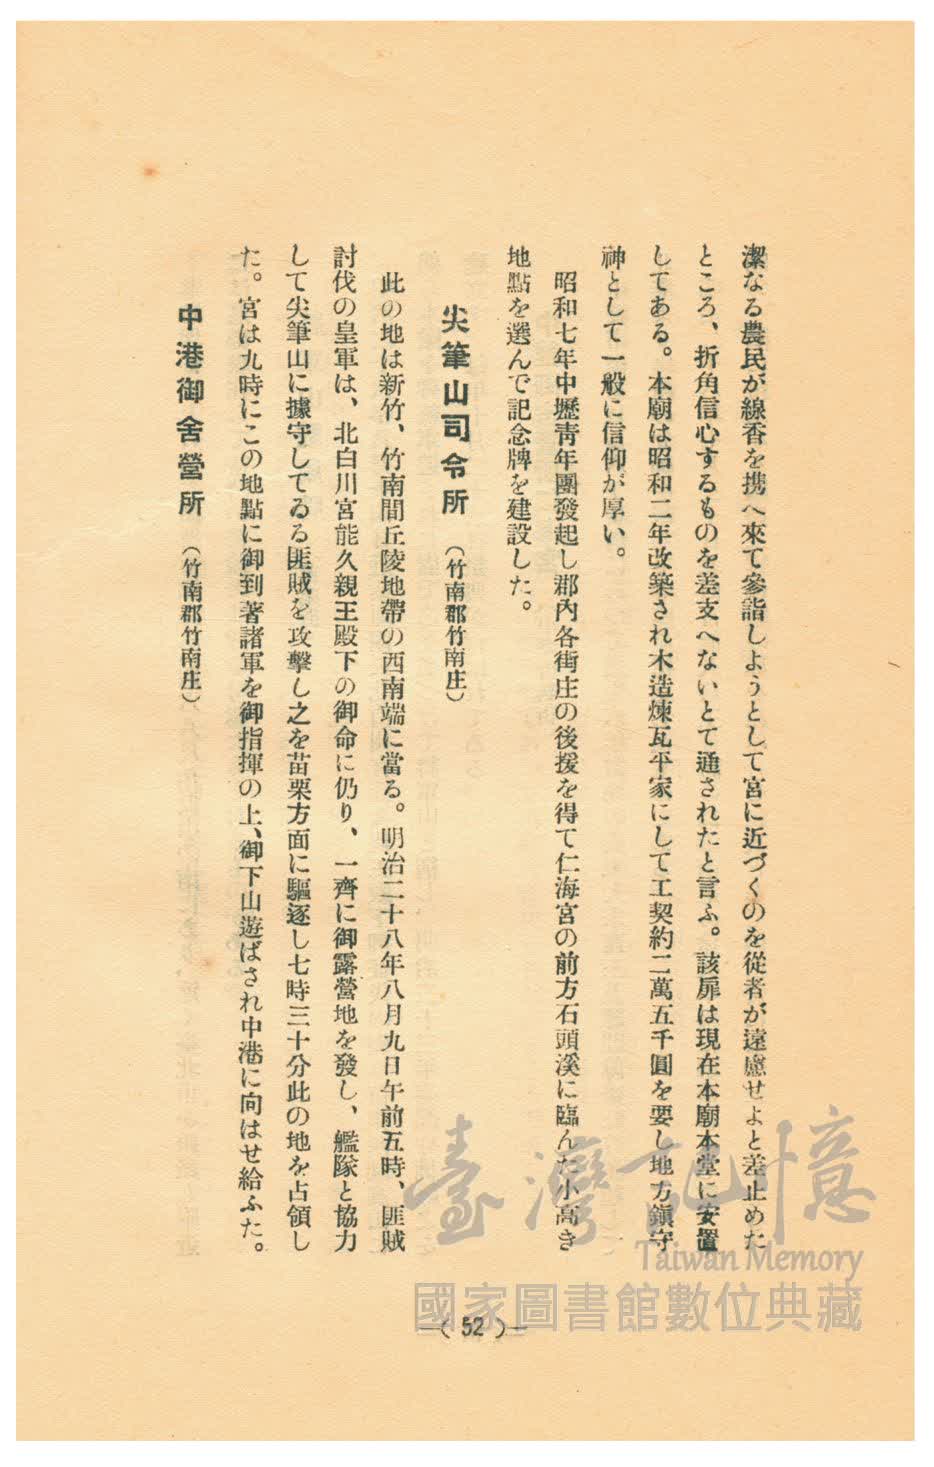 潔なる農民が線香を携へ來て參詣しようとして宮に近づくのを從者が遠慮せよと差止めた
ところ、折角信心するものを差支へないとて通されたと言ふ。該扉は現在本廟本堂に安置
してある。本廟は昭和二年改築され木造煉瓦平家にして工契約二萬五千圓を要し地方鎭守
神として一般に信仰が厚い。
昭和七年中壢靑年團發起し郡內各街庄の後援を得て仁海宮の前方石頭溪に臨んだ小高き
地點を選んで記念牌を建設した。
尖筆山司令所 （竹南郡竹南庄）
此の地は新竹、竹南間丘陵地帶の西南端に當る。明治二十八年八月九日午前五時、匪賊
討伐の皇軍は、北白川宮能久親王殿下の御命に仍り、一齊に御露營地を發し、艦隊と協力
して尖筆山に據守してゐる匪賊を攻擊し之を苗栗方面に驅逐し七時三十分此の地を占領し
た。宮は九時にこの地點に御到著諸軍を御指揮の上、御下山遊ばされ中港に向はせ給ふた。
中港御舍營所 （竹南郡竹南庄）
—( 52 )—
臺灣記憶
Taiwan Memory
國家圖書館數位典藏